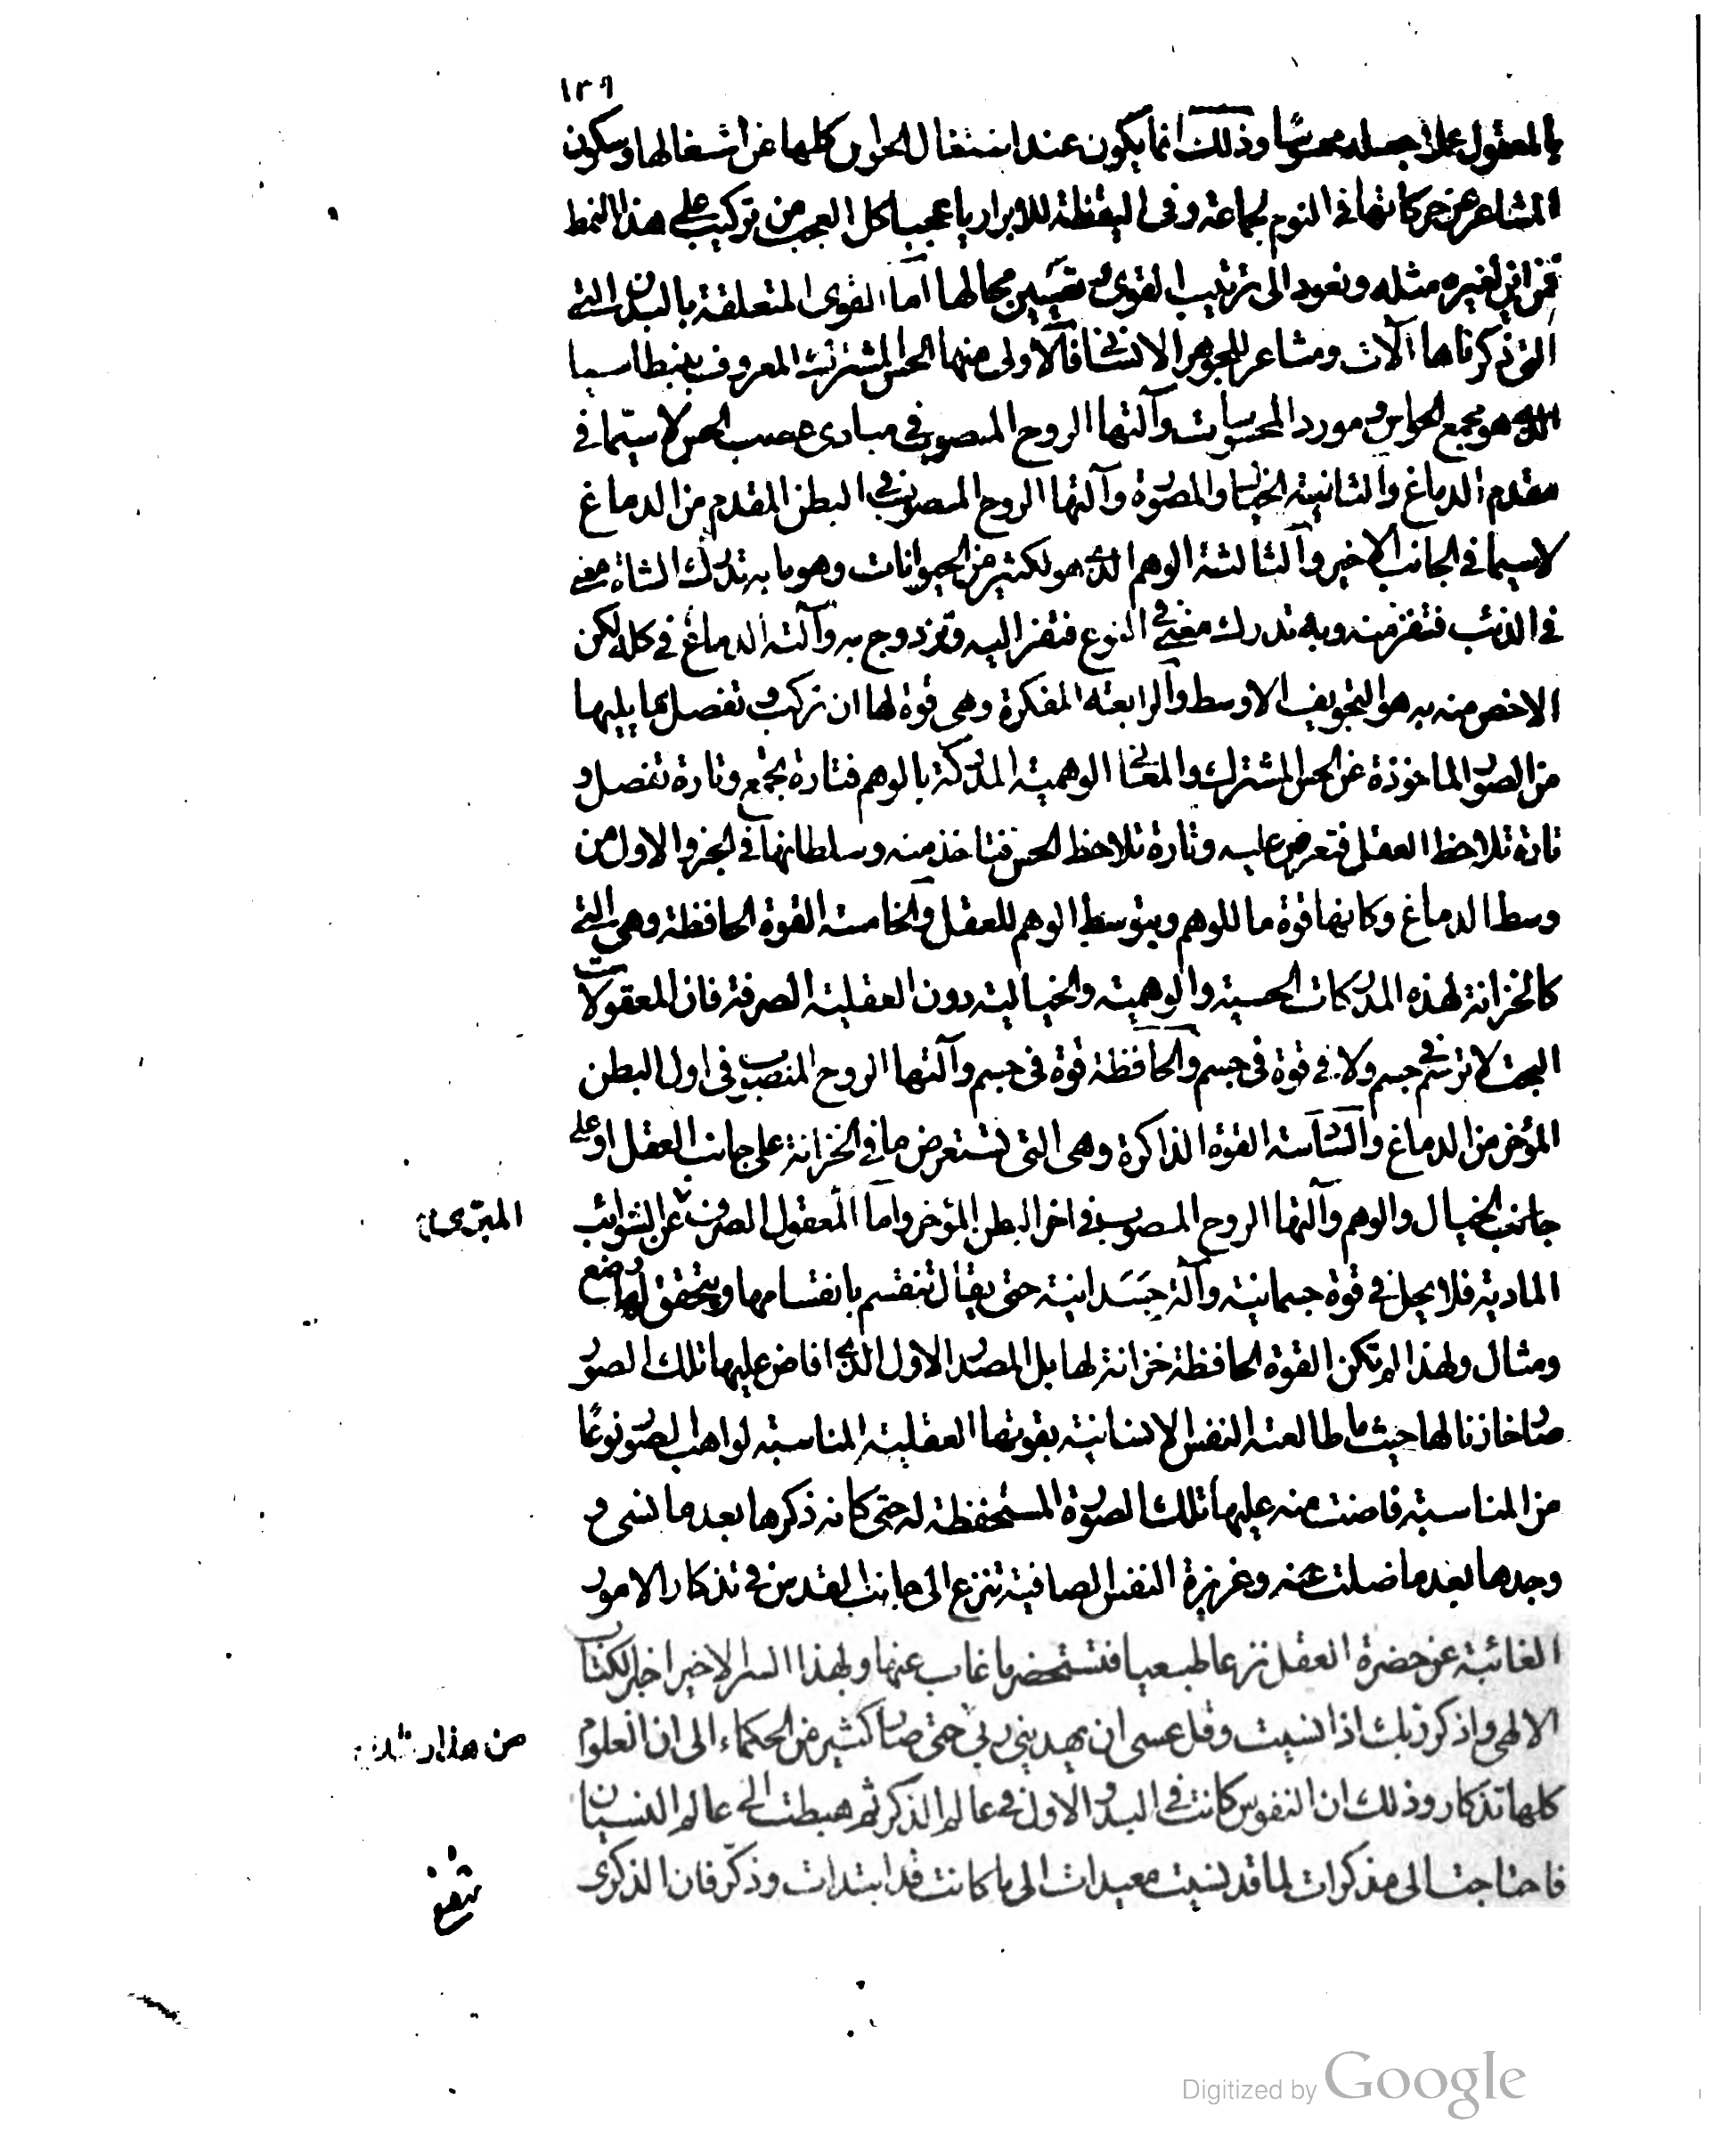 ١٣٦
بالمعقول عملا جسله محسوسًا وذلك انما يكون عند اشتغال الحواس كلها عن اشغالها وسكون
المشاعر عن حركاتها فى النوم لجماعة وفى اليقظة للابرار يا عجبا كل العجب من تركيب على هذا النمط
فمن اين لغيره مثله ونعود الى ترتيب القوى و تعيين محالها اما القوى المتعلقة بالبدن التى
التى ذكرناها آلات ومشاعر للجوهر الانسانى فالاولى منها الحس المشترك المعروف ببنطاسيا
الذى هو مجمع الحواس و مورد المحسوسات وآلتها الروح المصبوب فى مبادى عصب الحس لا سيّما فى
مقدم الدماغ والثانية الخيال والمصورة وآلتها الروح المصبوب فى البطن المقدم من الدماغ
لا سيما فى الجانب الاخير والثالثة الوهم الذى هو لكثير من الحيوانات وهو ما به تدرك الشاة معنى
فى الذئب فتنفر منه وبه تدرك معنى فى النوع فتنفر اليه وتزدوج به وآلته الدماغ فى كله لكن
الاخص منه به هو التجويف الاوسط والرابعة المفكرة وهى قوة لها ان تركب و تفصل مما يليها
من الصور الماخوذة عن الحس المشترك والمعانى الوهمية المدركة بالوهم فتارة تجمع وتارة تفصل و
تارة تلاحظ العقل فتعرض عليه وتارة تلاحظ الحس فتاخذ منه وسلطانها فى الجزو الاول من
وسط الدماغ وكانها قوة ما للوهم وبتوسط الوهم للعقل والخامسة القوة الحافظة وهى التى
كالخزانة لهذه المدركات الحسية والوهمية والخيالية دون العقلية الصرفة فان المعقولات
البحت لا ترتسم فى جسم ولا فى قوة فى جسم والحافظة قوة فى جسم وآلتها الروح المنصوب فى اول البطن
المؤخر من الدماغ والسادسة القوة الذاكرة وهى التى تستعرض ما فى الخزانة على جانب العقل او على
جانب الخيال والوهم وآلتها الروح المصبوب فى اخر البطن المؤخر واما المعقول الصرف عن الشوائب
المبرّى
المادية فلا يحل فى قوة جسمانية وآلة جَسَدانية حتى يقال تنقسم بانقسامها ويتحقق لها وضع
ومثال ولهذا لم تكن القوة الحافظة خزانة لها بل المصدر الاول الذى افاض عليها تلك الصور
صار خازنا لها حيث ما طالعته النفس الانسانية بقوتها العقلية المناسبة لواهب الصور نوعًا
من المناسبة فاضت منه عليها تلك الصورة المستحفظة له حتى كانه ذكرها بعد ما نسى و
وجدها بعد ما ضلت عنه وغريزة النفس الصافية تنزع الى جانب القدس فى تذكار الامور
الغائبة عن حضرة العقل نزعا طبعيا فتستحضر ما غاب عنها ولهذا السر الاخير اخبر الكتاب
الالهى واذكر ربك اذا نسيت وقل عسى ان يهدينى ربى حتى صار كثير من الحكماء الى ان العلوم
من هذا رشدا
كلها تذكار وذلك ان النفوس كانت فى البدو الاول فى عالم الذكر ثم هبطت الى عالم النسيان
فاحتاجت الى مذكرات لما قد نسيت معيدات الى ما كانت قد ابتدات وذكّر فان الذكرى
تنفع
Digitized by Google